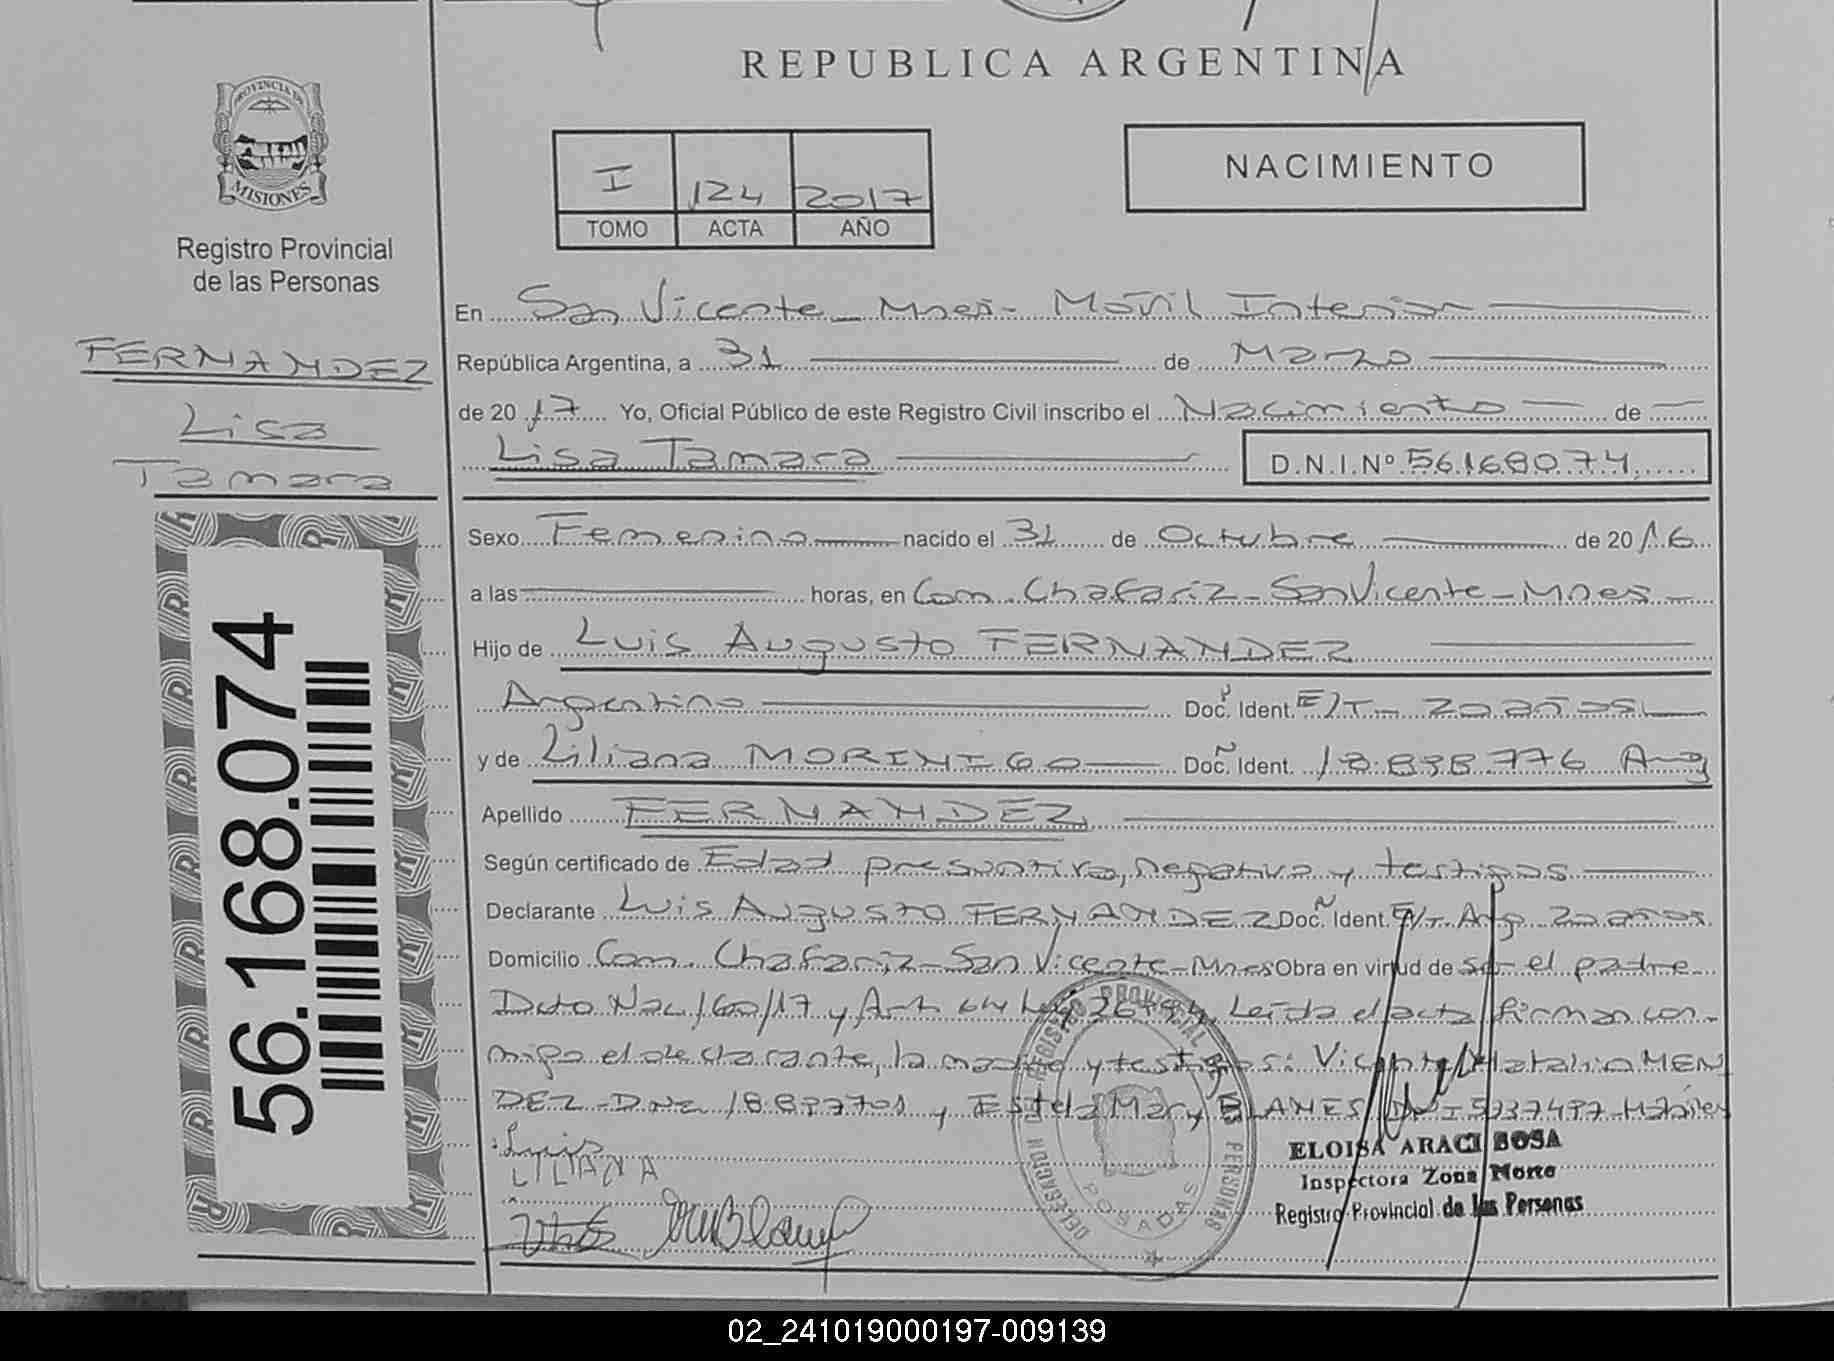 REPUBLICA ARGENTINA
PROVINCIA DE
MISIONES
Registro Provincial
de las Personas
I 124 2017
TOMO ACTA AÑO
NACIMIENTO
FERNANDEZ
Lisa
Tamara
56.168.074
En San Vicente - Mnes - Móvil Interior
República Argentina, a 31 de Marzo
de 2017 Yo, Oficial Público de este Registro Civil inscribo el Nacimiento de
Lisa Tamara D.N.I.Nº 56.168.074
Sexo Femenino nacido el 31 de Octubre de 2016
a las horas, en Com. Chafariz - San Vicente - Mnes -
Hijo de Luis Augusto FERNANDEZ
Argentino Doc. Ident. E/T - 20 años
y de Liliana MORINIGO Doc. Ident. 18.838.776 Arg
Apellido FERNANDEZ
Según certificado de Edad presuntiva, negativo y testigos
Declarante Luis Augusto FERNANDEZ Doc. Ident. E/T. Arg. 20 años
Domicilio Com. Chafariz - San Vicente - Mnes Obra en virtud de ser el padre
Dcto Nac 160/17 y Art 64 Ley 26994 Leída el acta firman con-
migo el declarante, la madre y testigos: Vicente Natalio MEN
DEZ - DNI 18.897701 y Estela Mary BLANES DNI 5737497 - Hábiles
Luis
LILIANA
DELEGACION REGISTRO PROVINCIAL DE LAS PERSONAS
POSADAS
ELOISA ARACI SOSA
Inspectora Zona Norte
Registro Provincial de las Personas
02_241019000197-009139